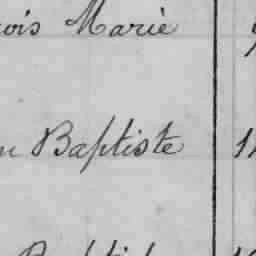 ois Marie
n Baptiste 14